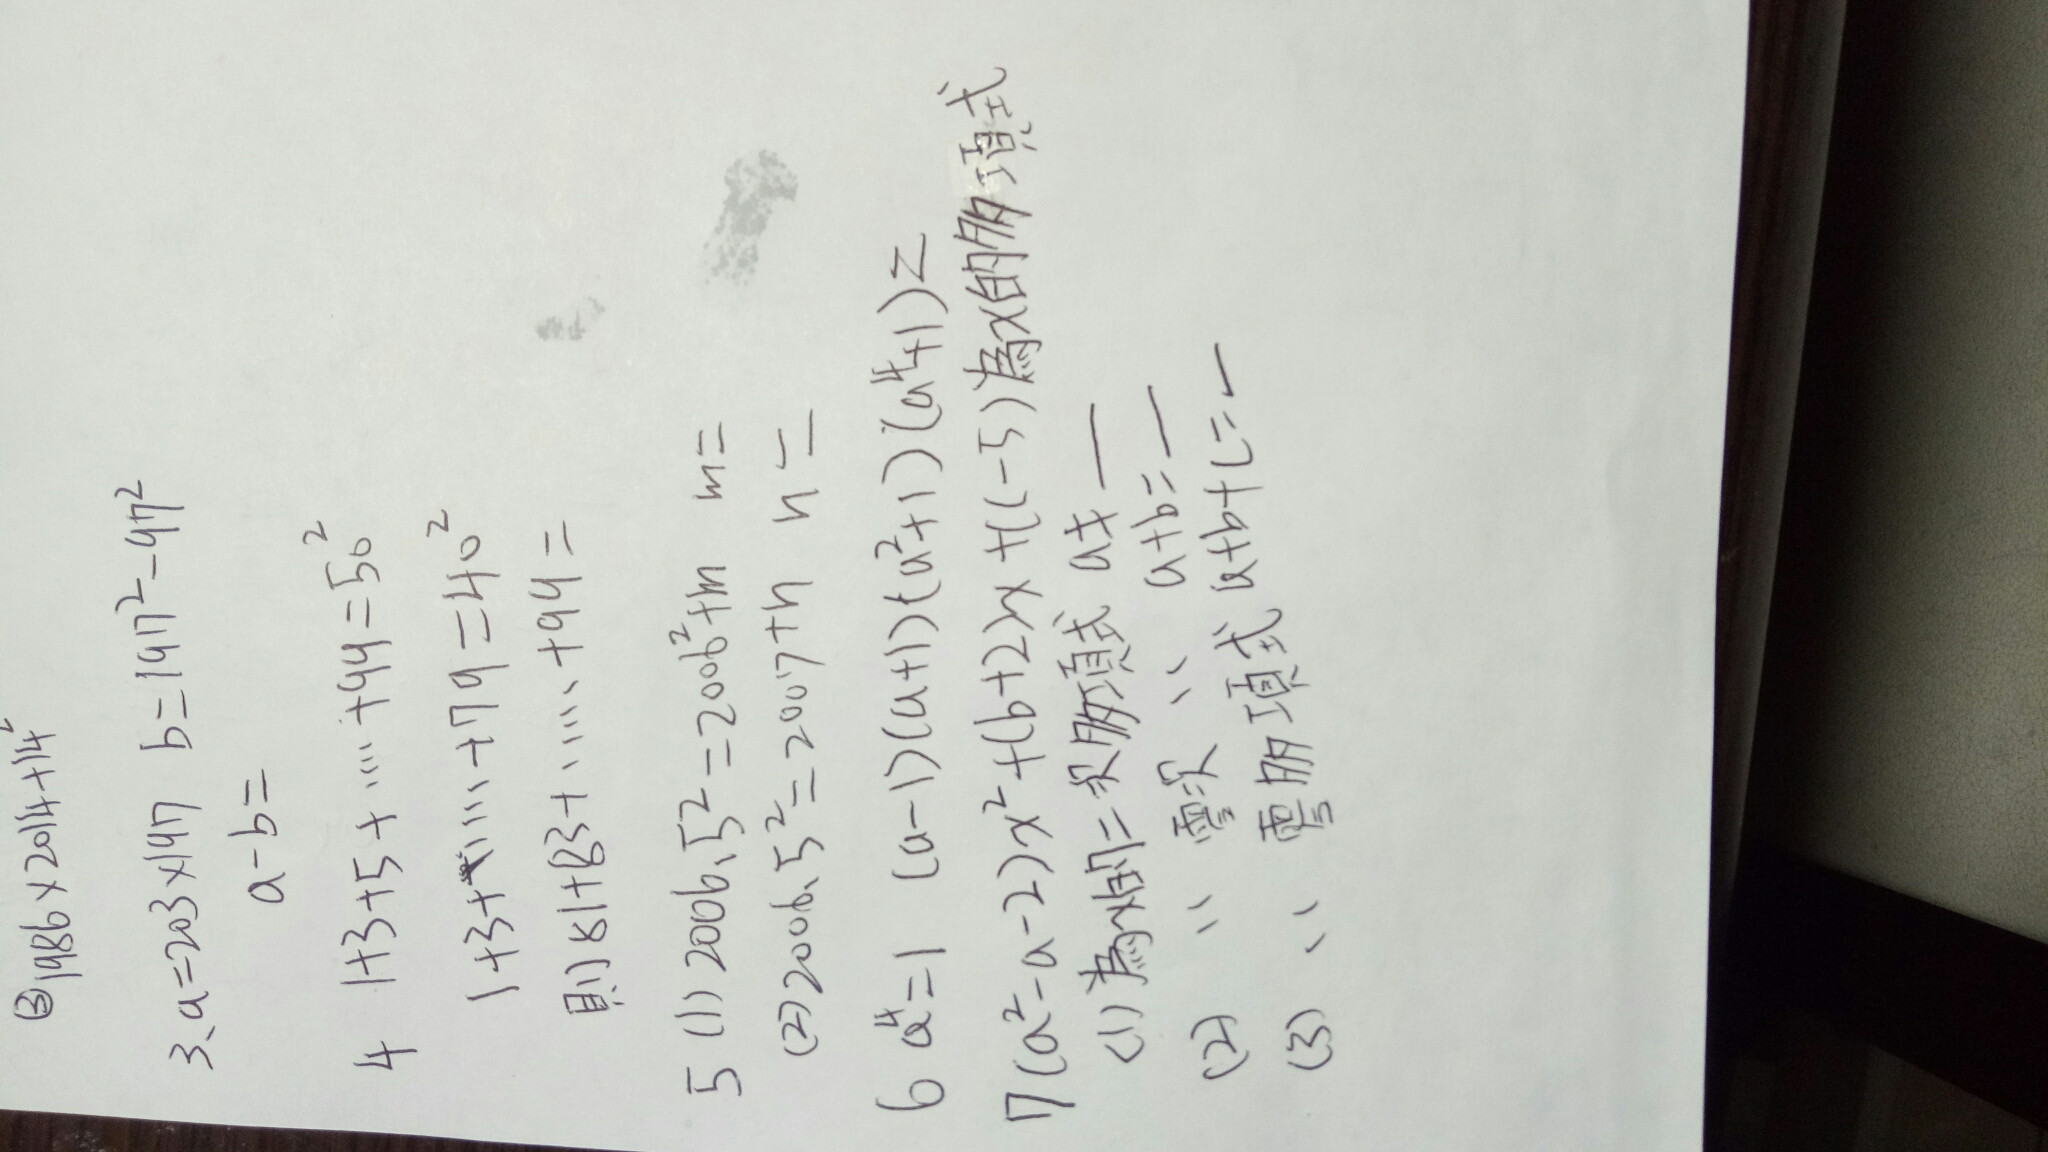 ③1986×2014+14²
3、a=203×197 b=197²-97²
a-b=
4 1+3+5+……+99=50²
1+3+……+79=40²
則81+83+……+99=
5 (1) 2006.5²=2006²+m m=
(2) 2006.5²=2007+n n=
6 a⁴=1 (a-1)(a+1)(a²+1)(a⁴+1)=
7 (a²-a-2)x²+(b+2)x+(c-5)為x的多項式
(1) 為x的二次多項式 a≠
(2) 〃 零次 〃 a+b=
(3) 〃 零多項式 a+b+c=